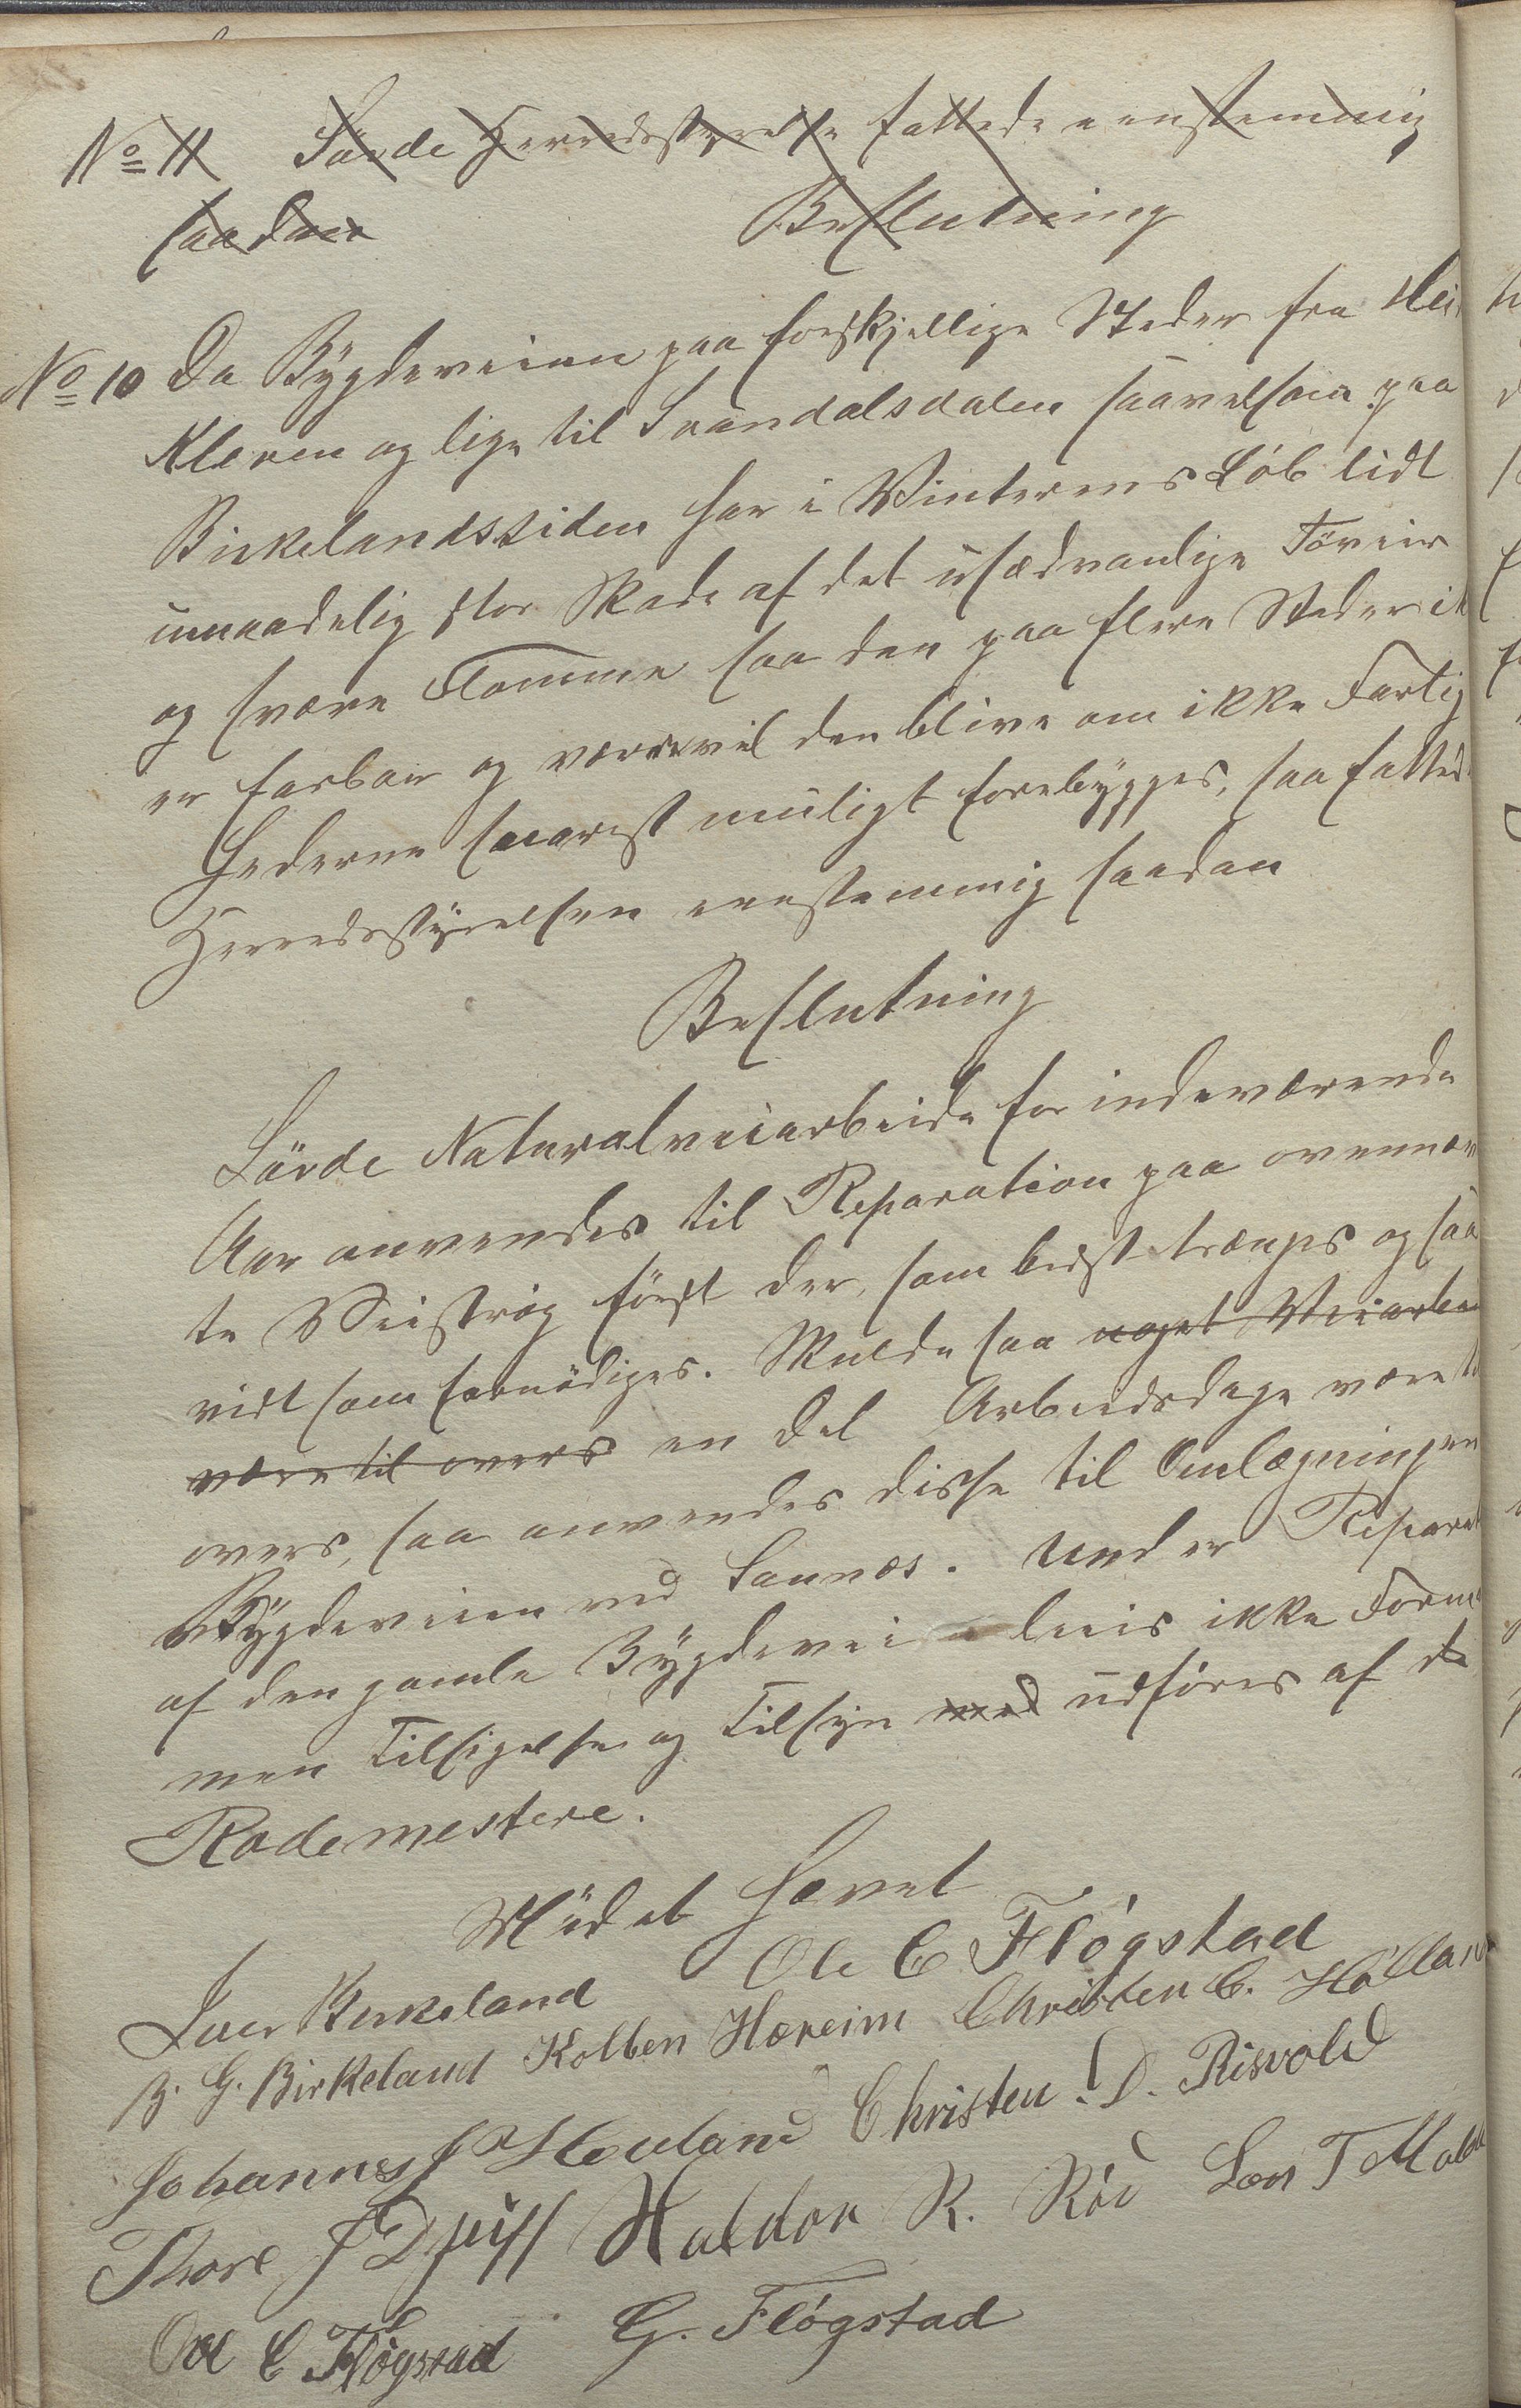 No 11 Søvde Herredsstyrelse fattede eenstemmig
saadan Beslutning
No 10 Da Bygdeveien paa forskjellige Steder fra
Kleven og lige til Svandalsdalen saavelsom paa
Birkelandssiden har i Vinterens Løb lidt
umaadelig stor Skade af det usædvanlige Töveir
og svære Flomme saa den paa flere Steder ik
er farbar og værre vil den blive om ikke Færdig
hederne snarest muligt forebygges, saa fattede
Herredsstyrelsen eenstemmig saadan
Beslutning
Sövde Naturalveiarbeide for indeværende
Aar anvendes til Reparation paa ovennæv
te Veistrøg først der, som bedst trænges og saa
vidt som fornødiges. Skulde saa noget Veiarbei
være til overs en Del Arbeidsdage være ti
overs, saa anvendes disse til Omlægningen
Bygdeveien ved Sannes. Under Reparat
af den gamle Bygdevei leies ikke Form
men Tilsigelse og Tilsyn med udføres af de
Rodemestere.
Mødet hævet
Iver Birkeland Ole C Fløgstad
B. G. Birkeland Kolben Hæreim Christen C. Hølland
Johannes J Houland Christen D. Risvold
Thore J Haldor K. Rød Lars T
Ole C Fløgstad G. Fløgstad